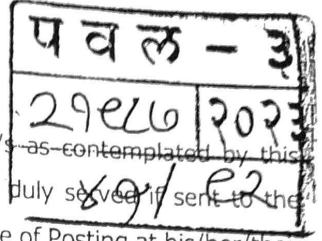 प व ल - ३
२१९८७ २०२३
as contemplated by this
duly served if sent to the
४१/ ९२
of Posting at his/her/